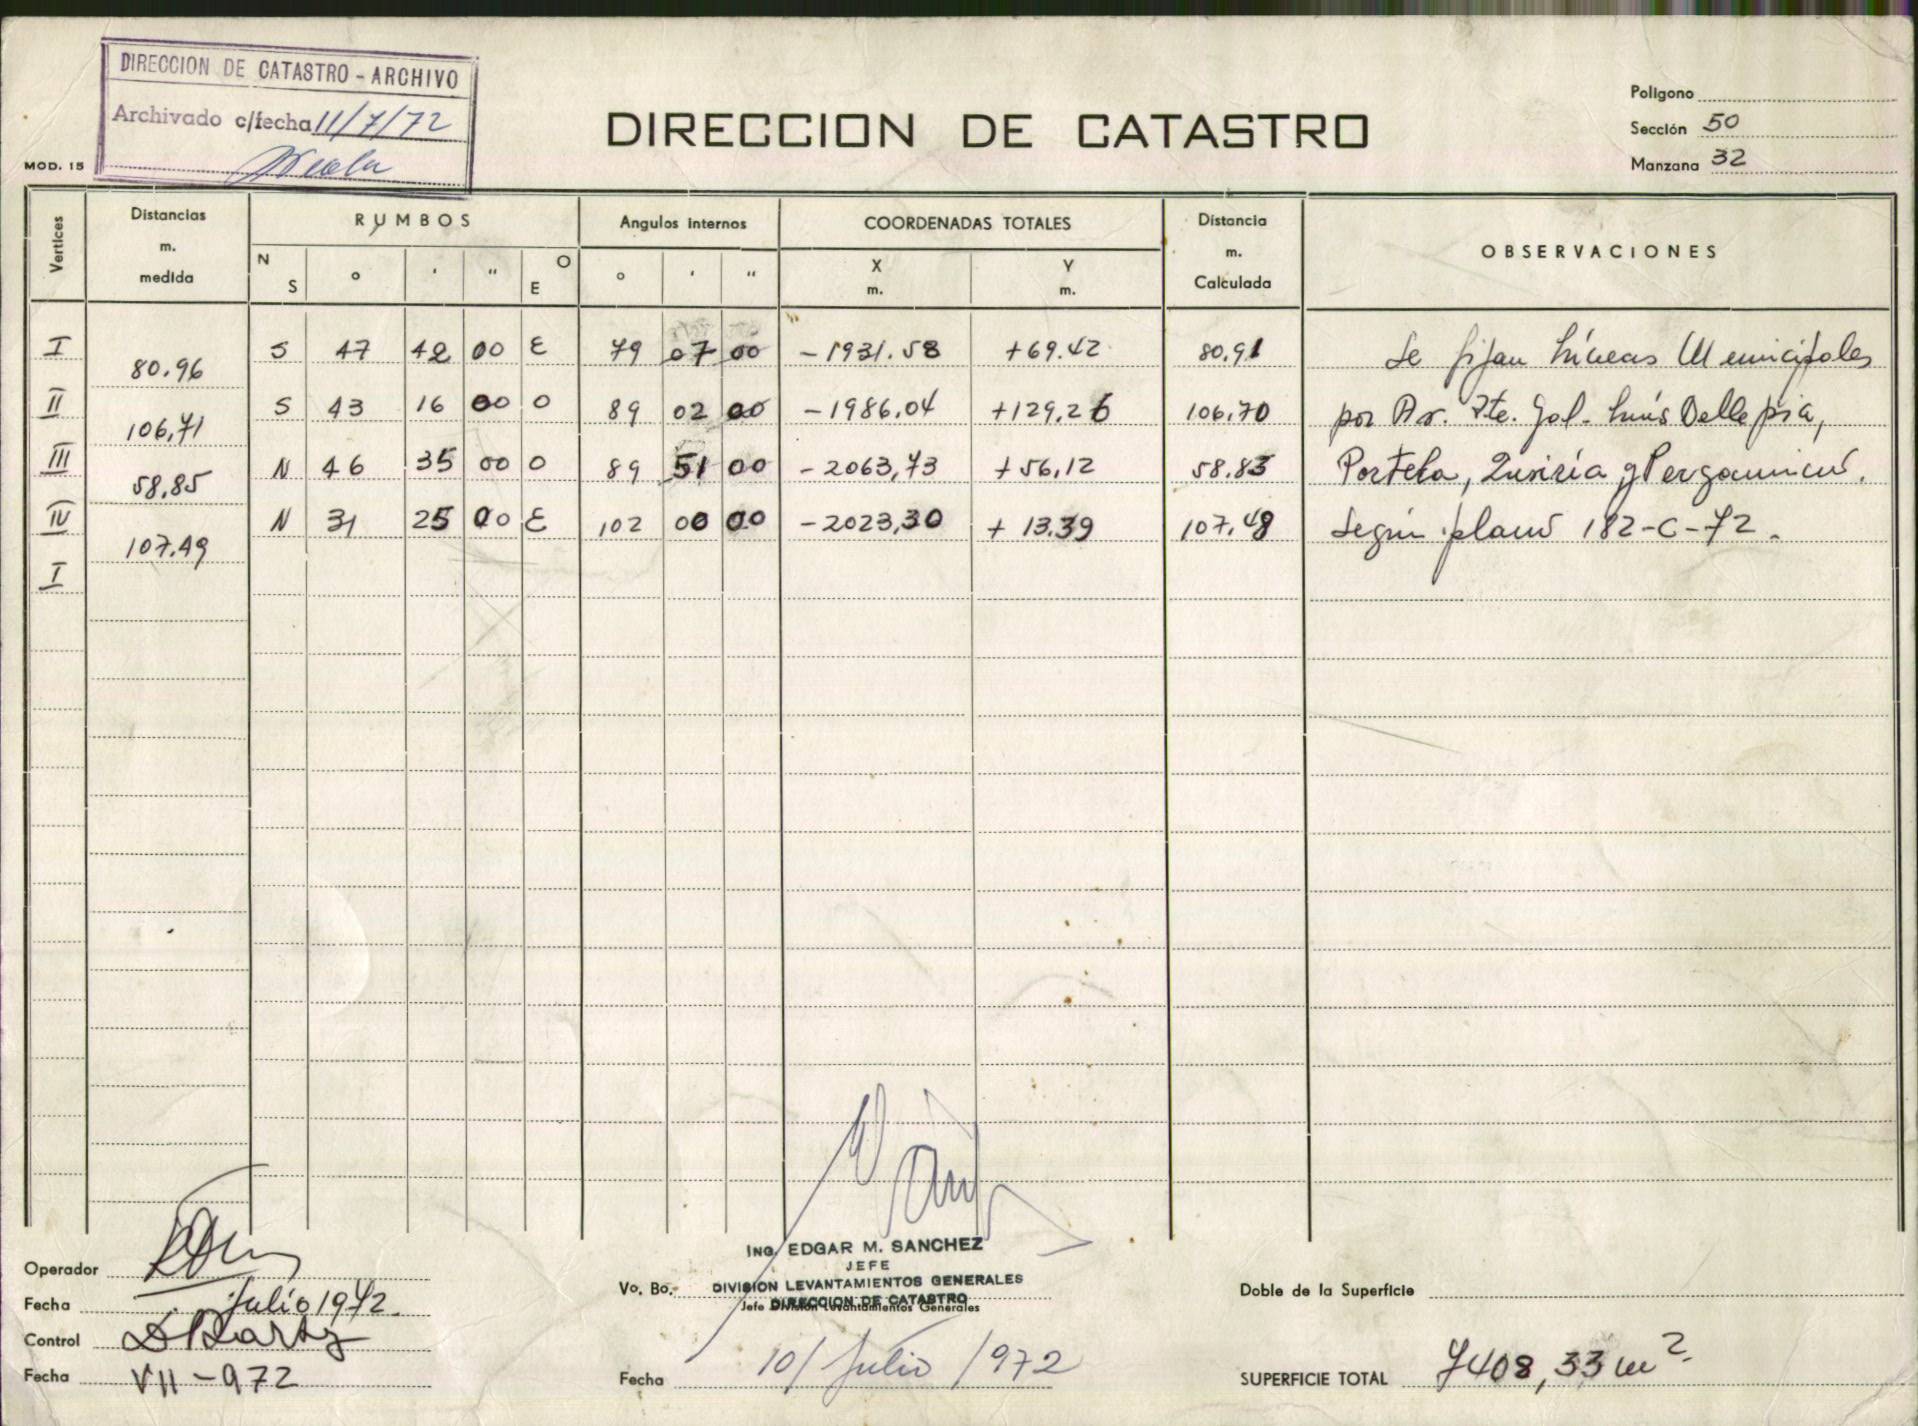 DIRECCION DE CATASTRO - ARCHIVO
Archivado c/fecha 11/7/72
MOD. 15
DIRECCION DE CATASTRO
Polígono
Sección 50
Manzana 32
Vertices
Distancias
m.
medida
RUMBOS
N S ° ' " O E
Angulos internos
° ' "
COORDENADAS TOTALES
X
m.
Y
m.
Distancia
m.
Calculada
OBSERVACIONES
I S 47 42 00 E 79 07 00 -1931.58 +69.42 80,91 Se fijan Líneas Municipales
80.96
II S 43 16 00 O 89 02 00 -1986,04 +129,26 106,70 por Av. Pte. Gol. Luis Dellepia,
106,71
III N 46 35 00 O 89 51 00 -2063,73 +56,12 58.83 Portela, y Pergamino.
58,85
IV N 31 25 00 E 102 00 00 -2023,30 +13.39 107,48 Según plano 182-C-72.
107.49
I
Operador
Fecha Julio 1972.
Control
Fecha VII-972
ING. EDGAR M. SANCHEZ
JEFE
Vo. Bo. DIVISION LEVANTAMIENTOS GENERALES
DIRECCION DE CATASTRO
Jefe División Levantamientos Generales
Fecha 10/Julio/972
Doble de la Superficie
SUPERFICIE TOTAL 7408,33 m2.